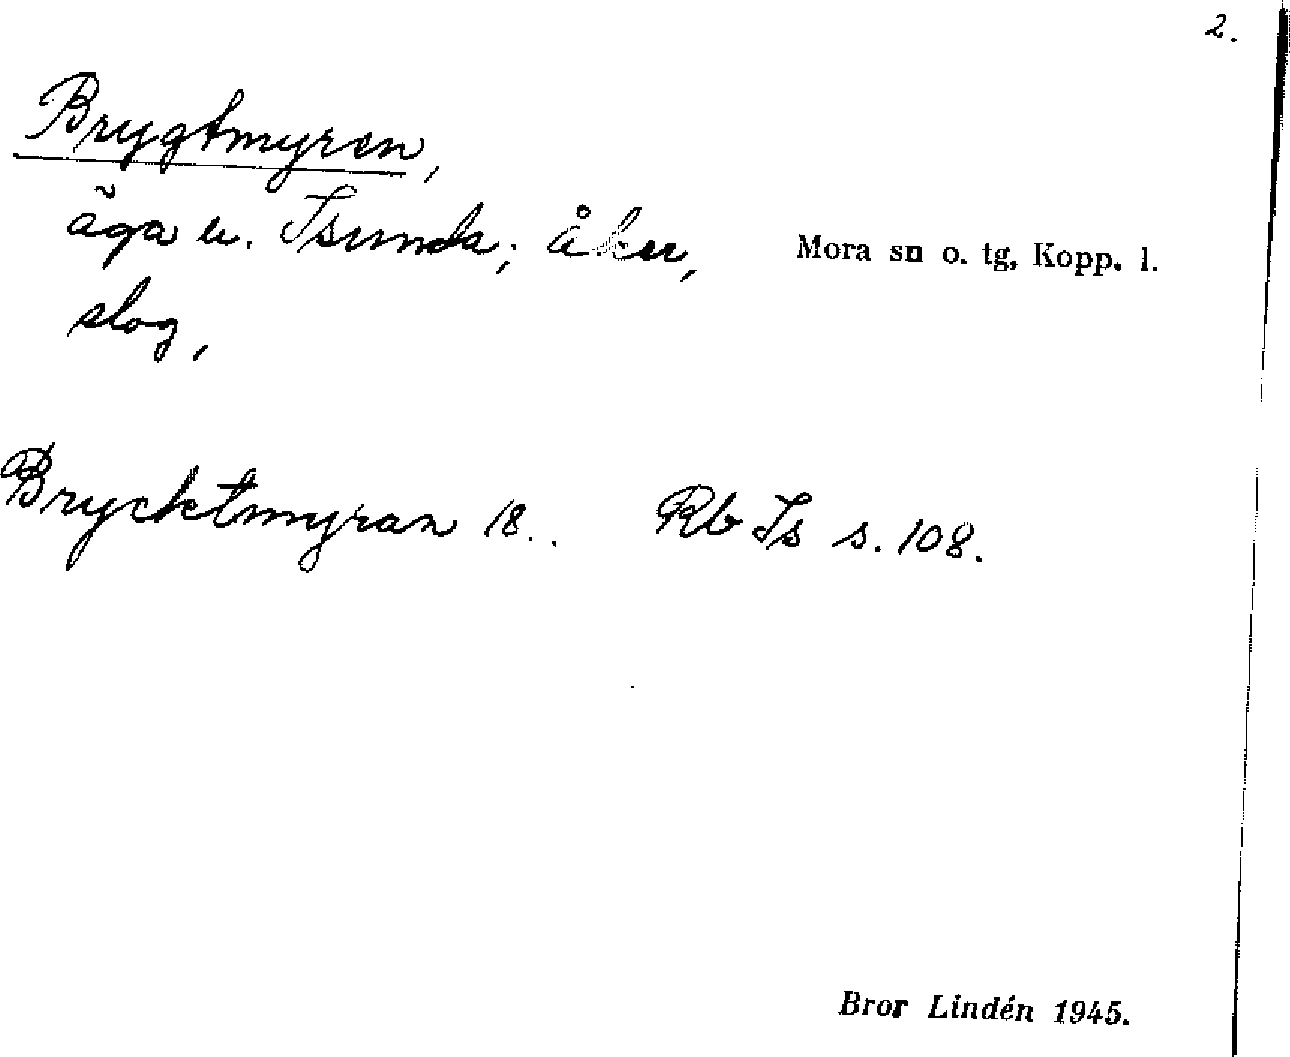 2.
Brygtmyren,
äga u. Isunda; åker, Mora sn o. tg, Kopp. l.
slog,
Brycktmyran 18.. Rb Is s. 108.
Bror Lindén 1945.